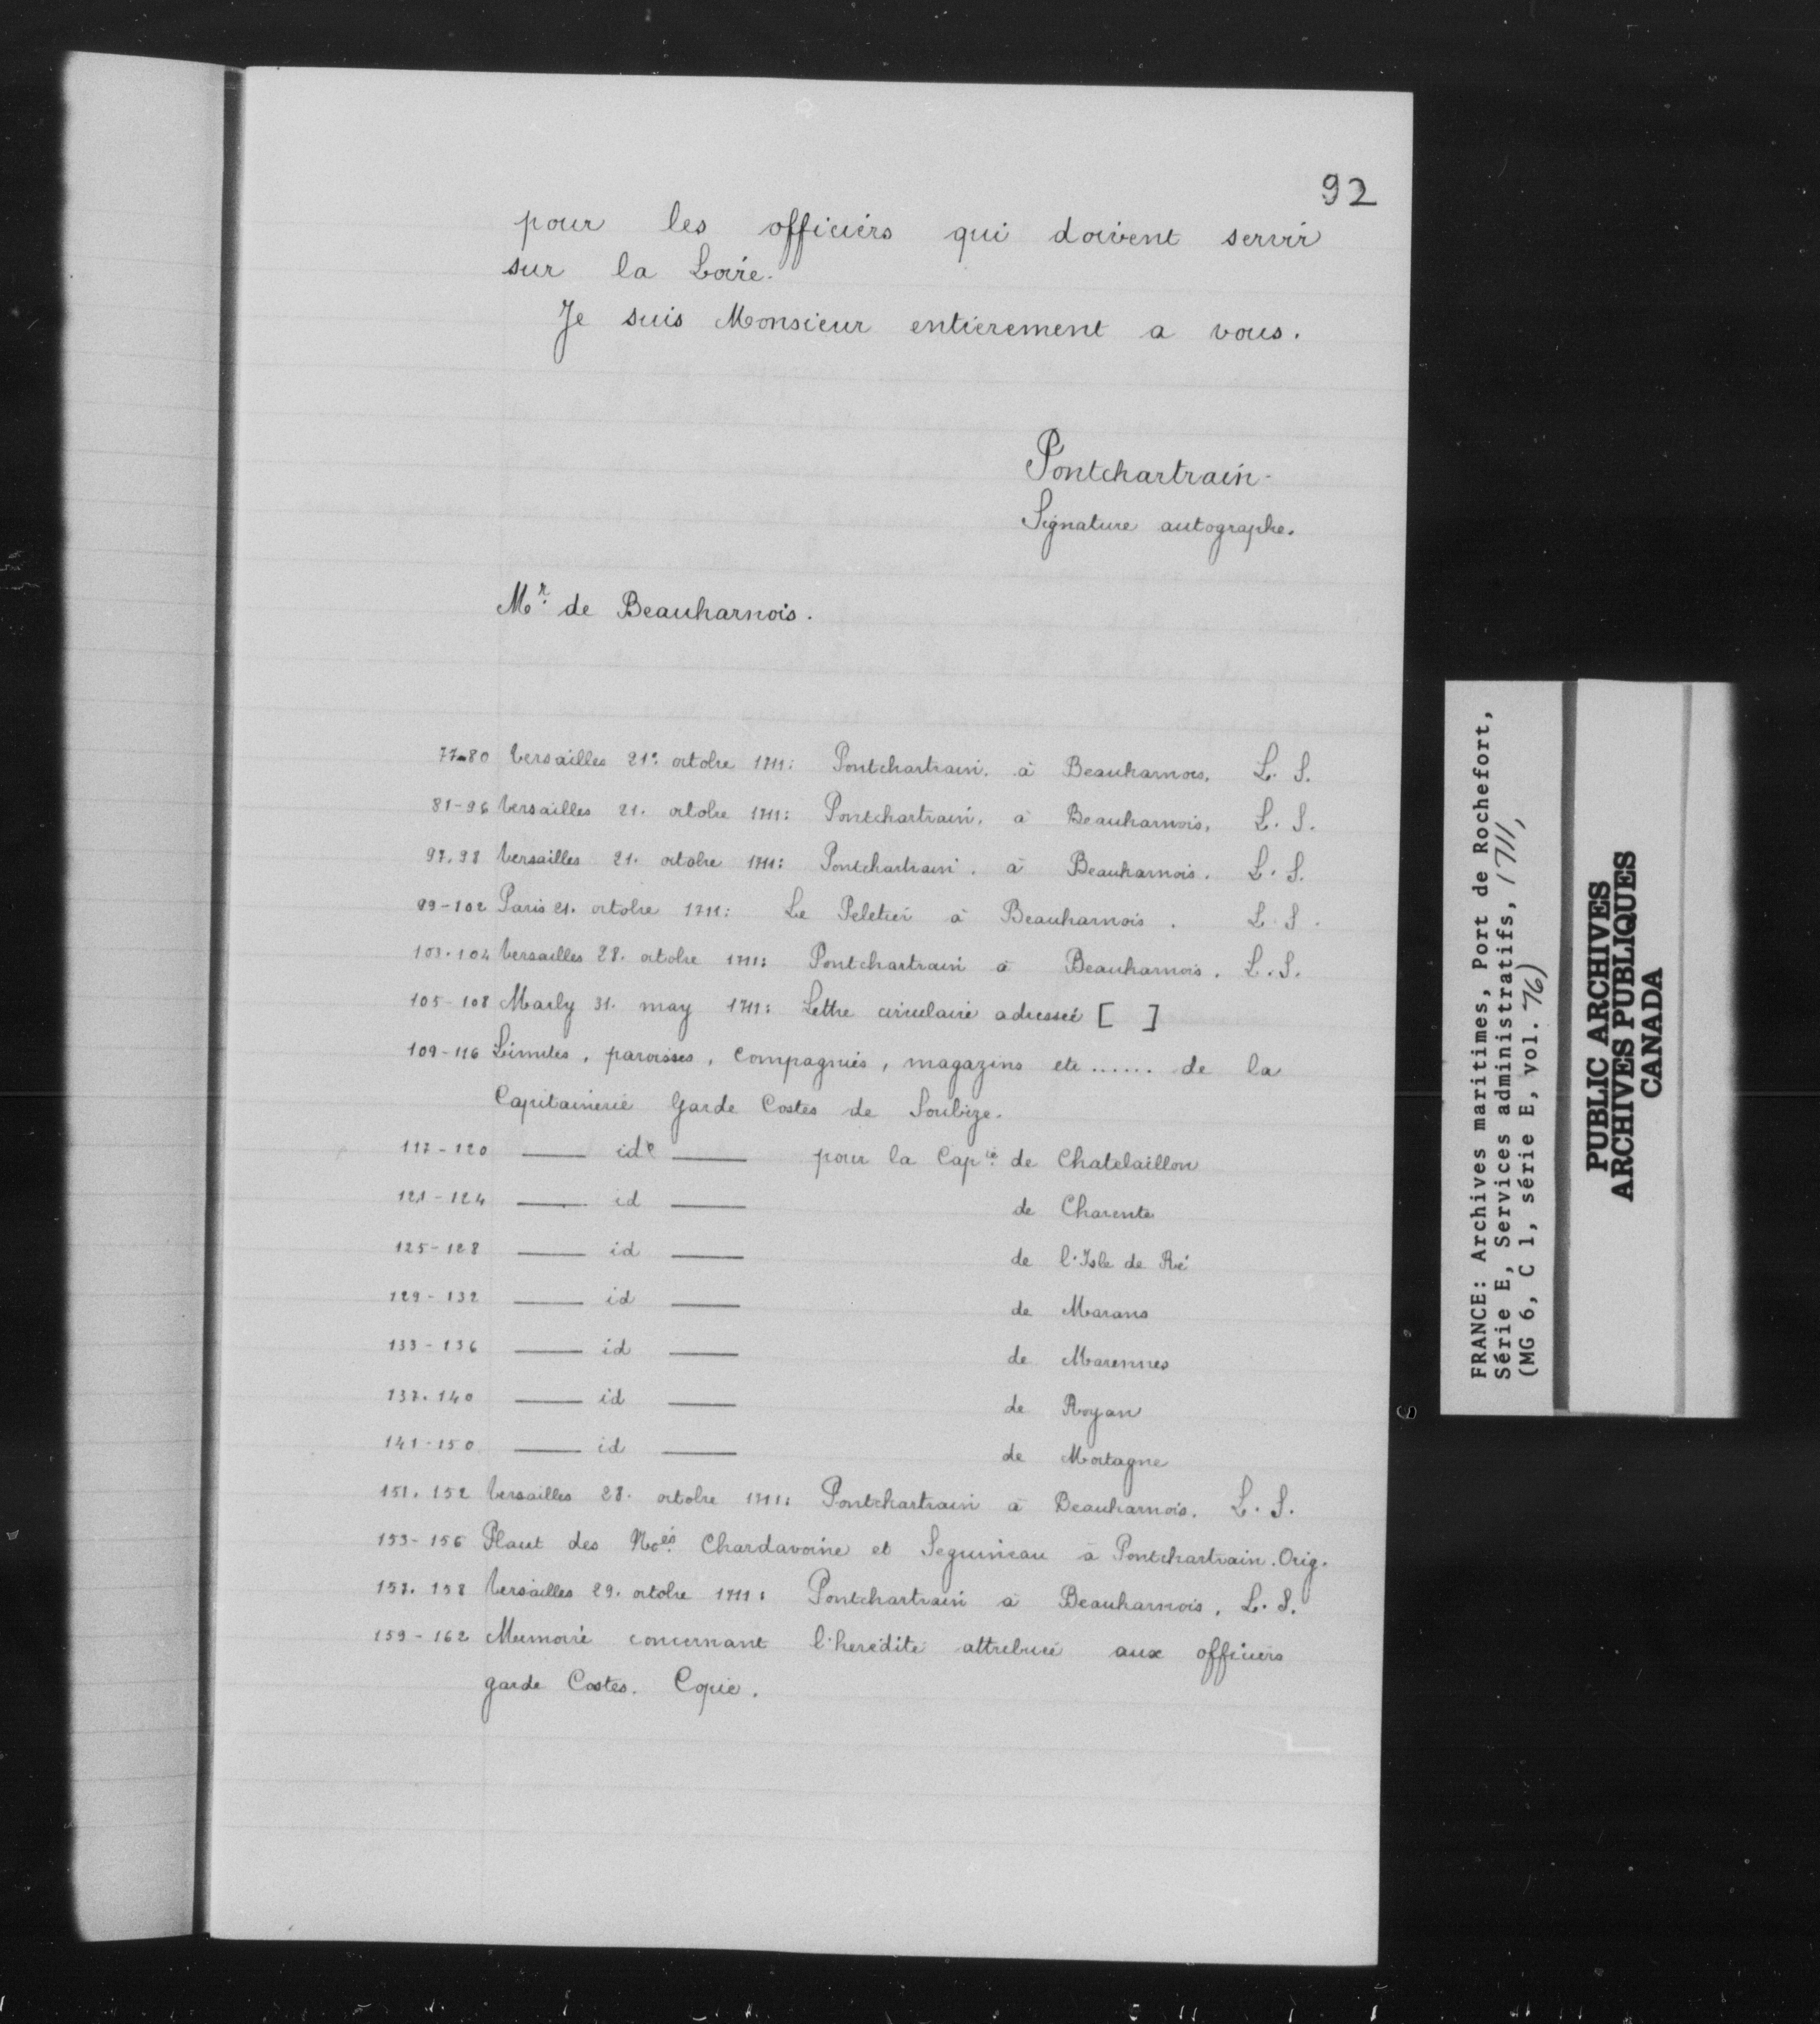 92
pour les officiers qui doivent servir
sur la Loire.
Je suis Monsieur entierement a vous.
Pontchartrain.
Signature autographe.
Mr. de Beauharnois.
77-80 Versailles 21. octobre 1711: Pontchartrain. à Beauharnois. L. S.
81-96 Versailles 21. octobre 1711: Pontchartrain, à Beauharnois, L. S.
97.98 Versailles 21. octobre 1711: Pontchartrain. à Beauharnois. L. S.
99-102 Paris 21. octobre 1711: Le Peletier à Beauharnois. L. S.
103.104 Versailles 28. octobre 1711: Pontchartrain à Beauharnois. L. S.
105-108 Marly 31. may 1711: Lettre circulaire adressée [ ]
109-116 Limites, paroisses, compagnies, magazins etc ...... de la
Capitainerie Garde Costes de Soubize.
117-120 —— id° —— pour la Capie. de Chatelaillon
121-124 —— id —— de Charente
125-128 —— id —— de l'Isle de Ré
129-132 —— id —— de Marans
133-136 —— id —— de Marennes
137.140 —— id —— de Royan
141-150 —— id —— de Mortagne
151.152 Versailles 28. octobre 1711: Pontchartrain à Beauharnois. L. S.
153-156 Placet des Chardavoine et Seguineau à Pontchartrain. Orig.
157.158 Versailles 29. octobre 1711: Pontchartrain à Beauharnois, L. S.
159-162 Memoire concernant l'heredité attribuée aux officiers
garde Costes. Copie.
FRANCE: Archives maritimes, Port de Rochefort,
Série E, Services administratifs, 1711,
(MG 6, C 1, série E, vol. 76)
PUBLIC ARCHIVES
ARCHIVES PUBLIQUES
CANADA